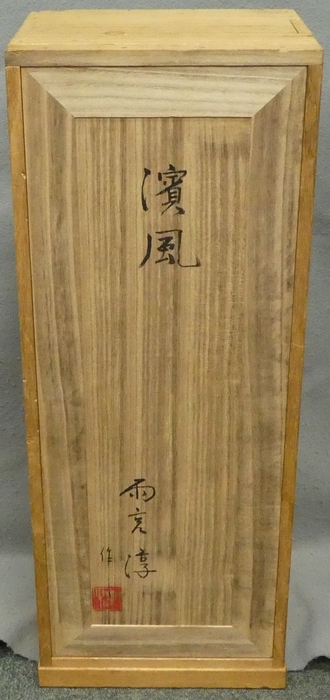 濱風
雨宮淳
作